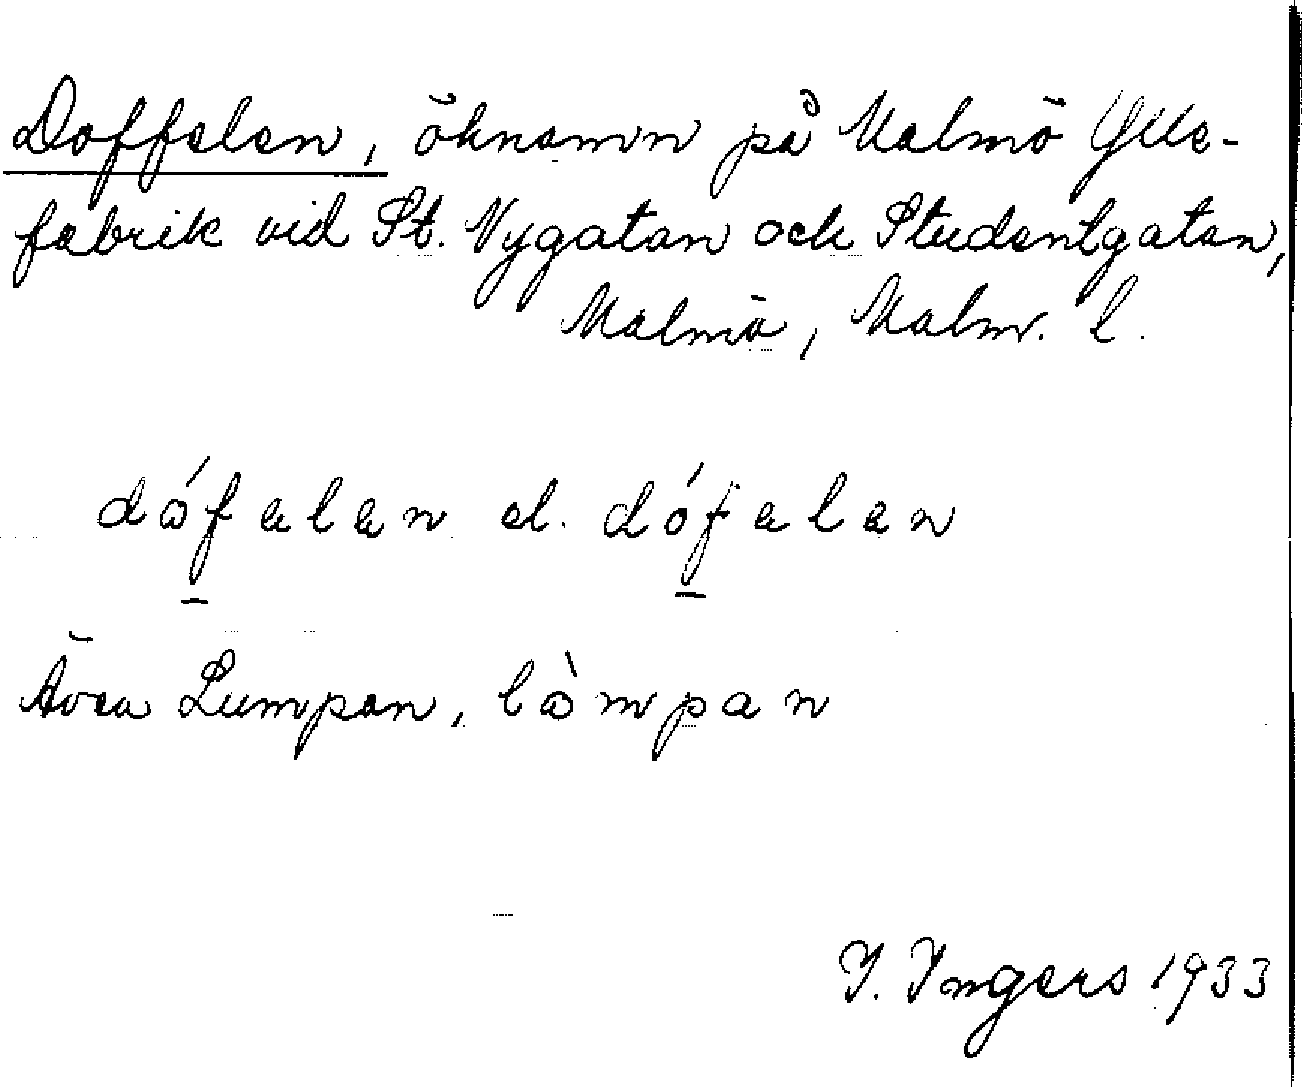 Doffelen, öknamn på Malmö Ylle-
fabrik vid St. Nygatan och Studentgatan,
Malmö, Malm. l.
dófalan el. dófalan
Även Lumpan, làmpan
I. Ingers 1933